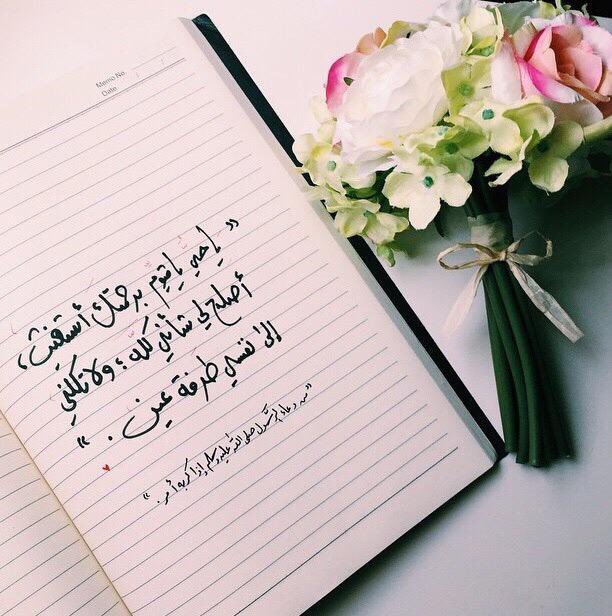 Memo No.
Date / /
" يا حيُّ يا قيّومُ برحمتك أستغيث،
أصلح لي شأني كلّه، ولا تكلني
إلى نفسي طرفة عين . "
"من دعاء الرسول صلى الله عليه وسلم إذا كربه أمر."